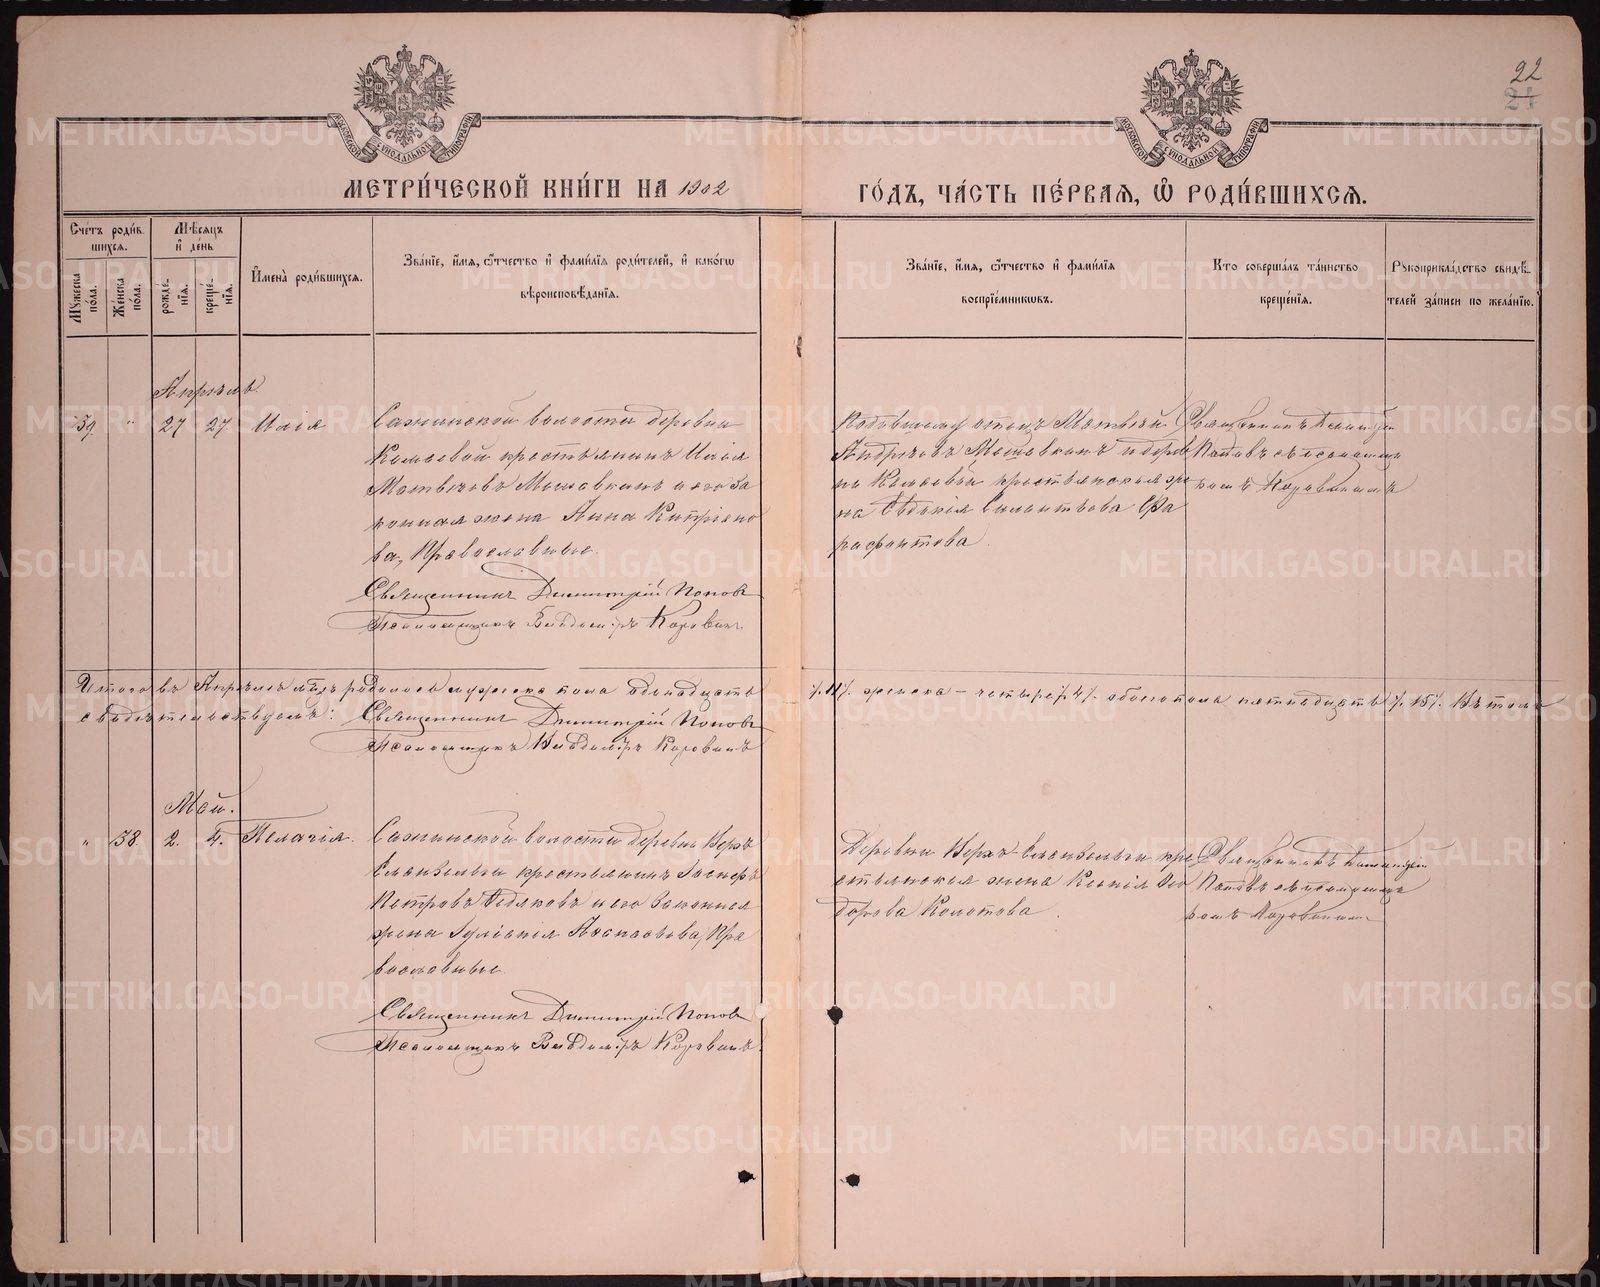 22
21
МОСКОВСКОЙ СѴНОДАЛЬНОЙ ТИПОГРАФІИ
МОСКОВСКОЙ СѴНОДАЛЬНОЙ ТИПОГРАФІИ
МЕТРИ́ЧЕСКОЙ КНИ́ГИ НА 1902
ГО́ДЪ, ЧА́СТЬ ПЕ́РВАЯ, Ѡ РОДИ́ВШИХСЯ.
Счетъ роди́вшихся.
Мꙋжеска по́ла.
Же́нска по́ла.
Мѣ́сяцъ и҆ де́нь
рожде́нїя.
креще́нїя.
И҆мена̀ роди́вшихся.
Зва́нїе, и҆́мя, ѻ҆́тчество и҆ фами́лїя роди́телей, и҆ како́гѡ
вѣроисповѣ́данїя.
Зва́нїе, и҆́мя, ѻ҆́тчество и҆ фами́лїя
воспрїе́мникѡвъ.
Кто соверша́лъ та́инство
креще́нїя.
Рꙋкоприкла́дство свидѣ́телей за́писи по жела́нїю.
Апрѣль
39. " 27 27. Илія
Сажинской волости деревни
крестьянинъ Илія
Матвѣевъ и его за
конная жена Анна Кипріяно
ва, Православные.
Священникъ Димитрій Поповъ
Псаломщикъ Владиміръ Коровинъ.
отецъ Матвѣй
Андреевъ и дерев
ни крестьянская же
на Евдокія Силантьева
Священникъ Димитрій
Поповъ съ псаломщи
комъ Коровинымъ
Итого въ Апрѣлѣ м-цѣ родилось мужеска пола одинадцать
/.11/. женска – четыре /.4/. обоего пола пятнадцать /.15/. Въ томъ
свидѣтельствуемъ: Священникъ Димитрій Поповъ
Псаломщикъ Владиміръ Коровинъ
Май.
" 38. 2. 4. Пелагія.
Сажинской волости деревни Верхъ
крестьянинъ
Петровъ и его законная
жена Гуліанія Аѳанасьева, Пра
вославные.
Священникъ Димитрій Поповъ
Псаломщикъ Владиміръ Коровинъ.
Деревни Верхъ кре
стьянская жена Ксенія Ѳео
дорова Колотова.
Священникъ Димитрій
Поповъ съ псаломщи
комъ Коровинымъ
METRIKI.GASO-URAL.RU